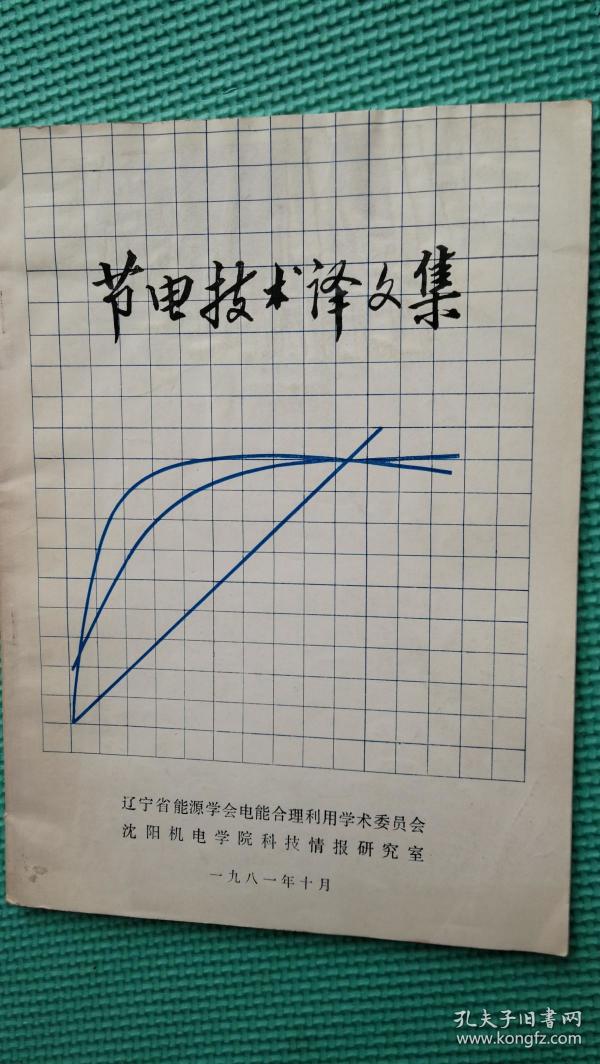 节电技术译文集
辽宁省能源学会电能合理利用学术委员会
沈阳机电学院科技情报研究室
一九八一年十月
孔夫子旧书网
www.kongfz.com